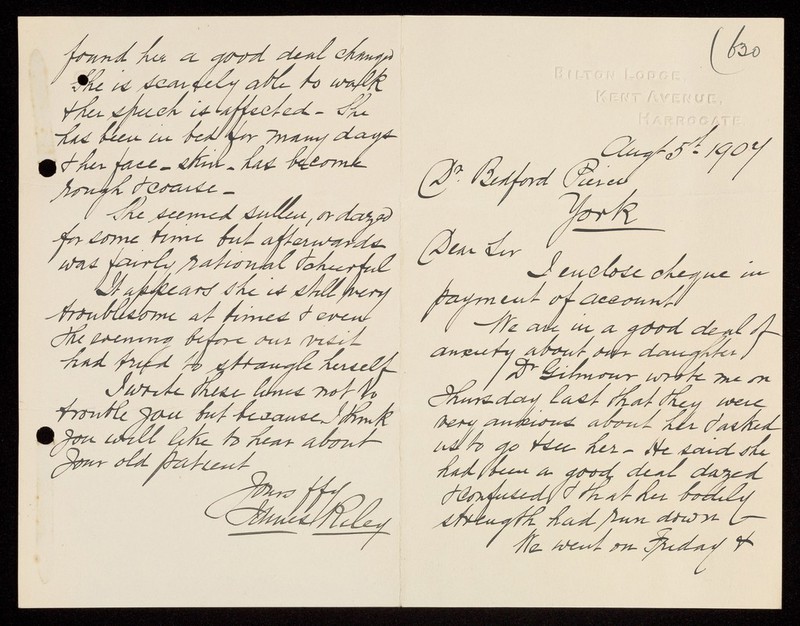 (630
BILTON LODGE.
KENT AVENUE,
HARROGATE
Augt 5th 1907
Dr. Bedford Pierce
York
Dear Sir
I enclose cheque in
payment of account
We are in a good deal of
anxiety about our daughter
Dr Gilmour wrote me on
Thursday last that they were
very anxious about her & asked
us to go & see her - He said she
had been a good deal dazed
& confused & that her bodily
strength had run down -
We went on Friday &
found her a good deal changed
She is scarcely able to walk
& her speech is affected - She
has been in bed for many days
& her face - skin - has become
rough & coarse -
She seemed sullen, or dazed
for some time but afterwards
was fairly rational & cheerful
It appears she is still very
troublesome at times & even
the evening before our visit
had tried to strangle herself
I write these lines not to
trouble you but because I think
you will like to hear about
your old patient
Yours ffy
James Riley